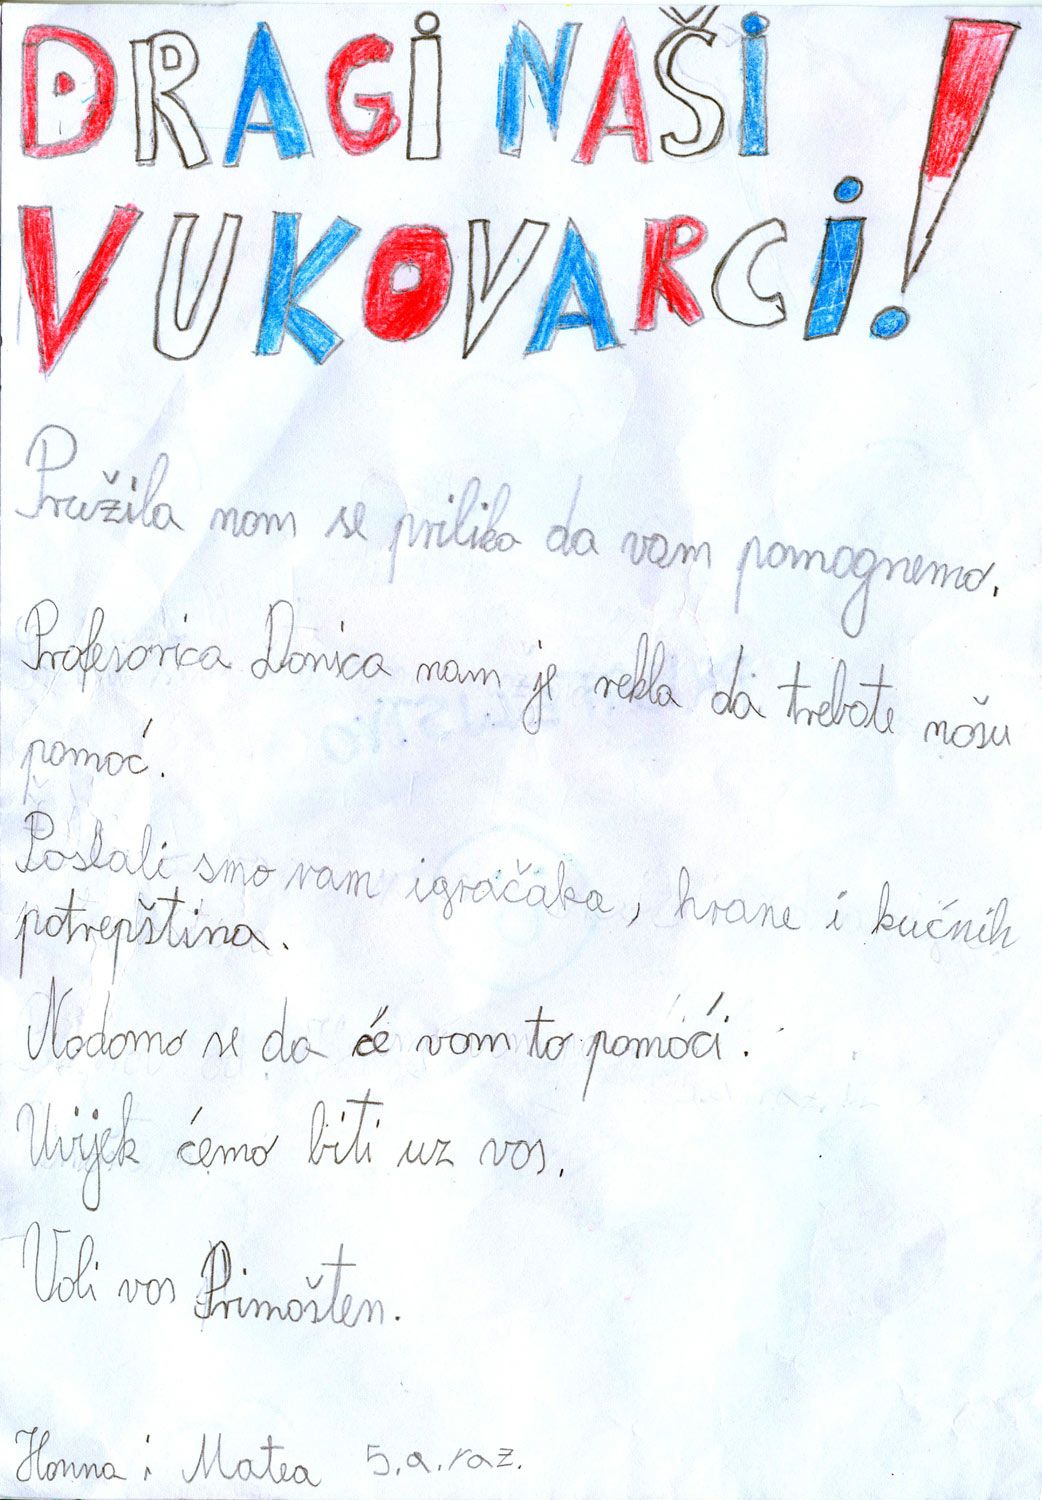 DRAGI NAŠI
VUKOVARCI!
Pružila nam se prilika da vam pomognemo.
Profesorica Danica nam je rekla da trebate našu
pomoć.
Poslali smo vam igračaka, hrane i kućnih
potrepština.
Nadamo se da će vam to pomoći.
Uvijek ćemo biti uz vas.
Voli vas Primošten.
Hanna i Matea 5.a.raz.